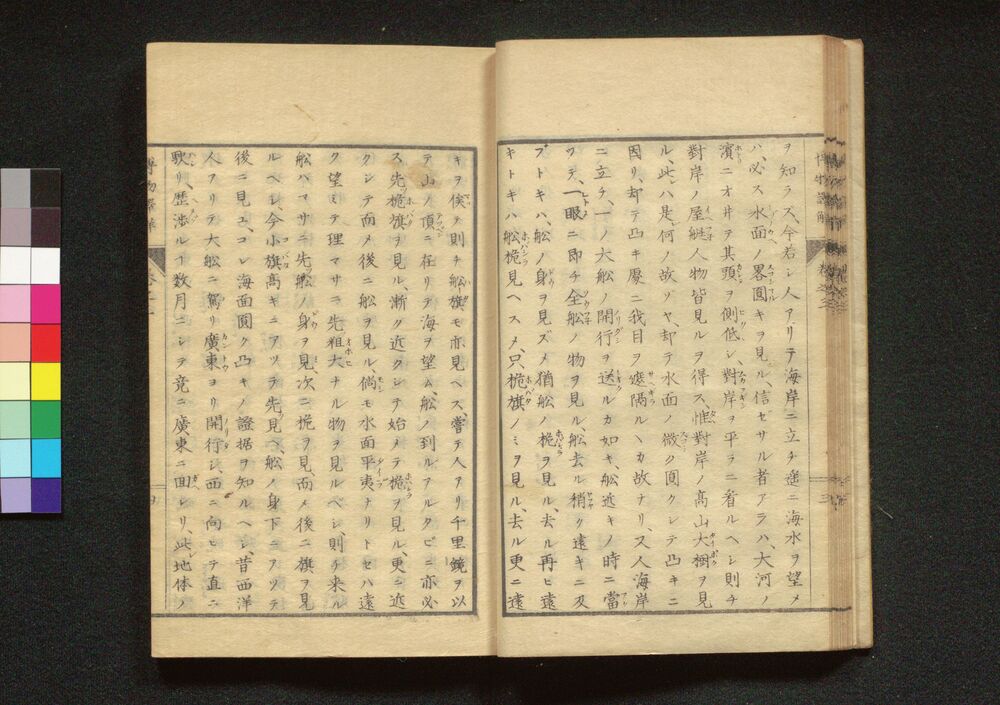 ヲ知ラズ、今若シ人アリテ海岸ニ立チ遙ニ海水ヲ望メ
ハ、必ス水面ノ畧圓キヲ見ル、信ゼサル者アラハ、大河ノ
濱ニオ井テ其頭ヲ側低シ、對岸ヲ平ラニ看ルヘシ則チ
對岸ノ屋艇人物皆見ルヲ得ス、惟對岸ノ高山大樹ヲ見
ル、此レハ是レ何ノ故ゾヤ、却テ水面ノ微ク圓クシテ凸キニ
因リ、却テ凸キ處ニ我目ヲ遮隔ルヽカ故ナリ、又人海岸
ニ立チ、一ノ大船ノ開行ヲ送ルカ如キ、船近キノ時ニ當
ツテ、一眼ニ即チ全船ノ物ヲ見ル、船去ル稍ク遠キニ及
ブトキハ、船ノ身ヲ見ズメ猶船ノ桅ヲ見ル、去ル再ヒ遠
キトキハ船桅見ヘスメ、只桅旗ノミヲ見ル、去ル更ニ遠
キヲ俟テ則チ船旗モ亦見ヘス、嘗テ人アリ千里鏡ヲ以
テ山ノ頂ニ在リテ海ヲ望ム、船ノ到ルアルタビニ亦必
ス先桅旗ヲ見ル、漸ク近クシテ始メテ桅ヲ見ル、更ニ近
クシテ而メ後ニ船ヲ見ル、倘モ水面平夷ナリトセハ遠
ク望ミテ理マサニ先粗大ナル物ヲ見ルベシ、則チ来ル
船ハマサニ先船ノ身ヲ見、次ニ桅ヲ見、而メ後ニ旗ヲ見
ルベシ、今小旗高キニアツテ先見ヘ、船ノ身下ニアツテ
後ニ見ユ、コレ海面圓ク凸キノ證据ヲ知ルヘシ、昔西洋
人アリテ大船ニ駕リ廣東ヨリ開行シ、西ニ向ヒテ直ニ
駛リ、歴渉ルヿ数月ニシテ竟ニ廣東ニ回レリ、此地体ノ